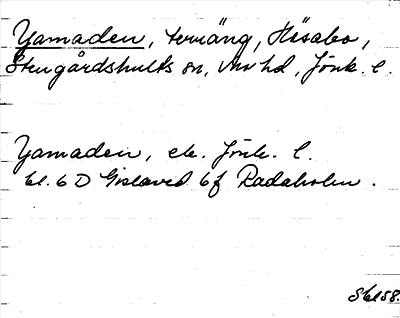 Yamaden, terräng, Hösabo,
Stengårdshults sn, Mo hd, Jönk. l.
Yamaden, ek. Jönk. l.
bl. 6 D Gislaved 6f Radaholm.